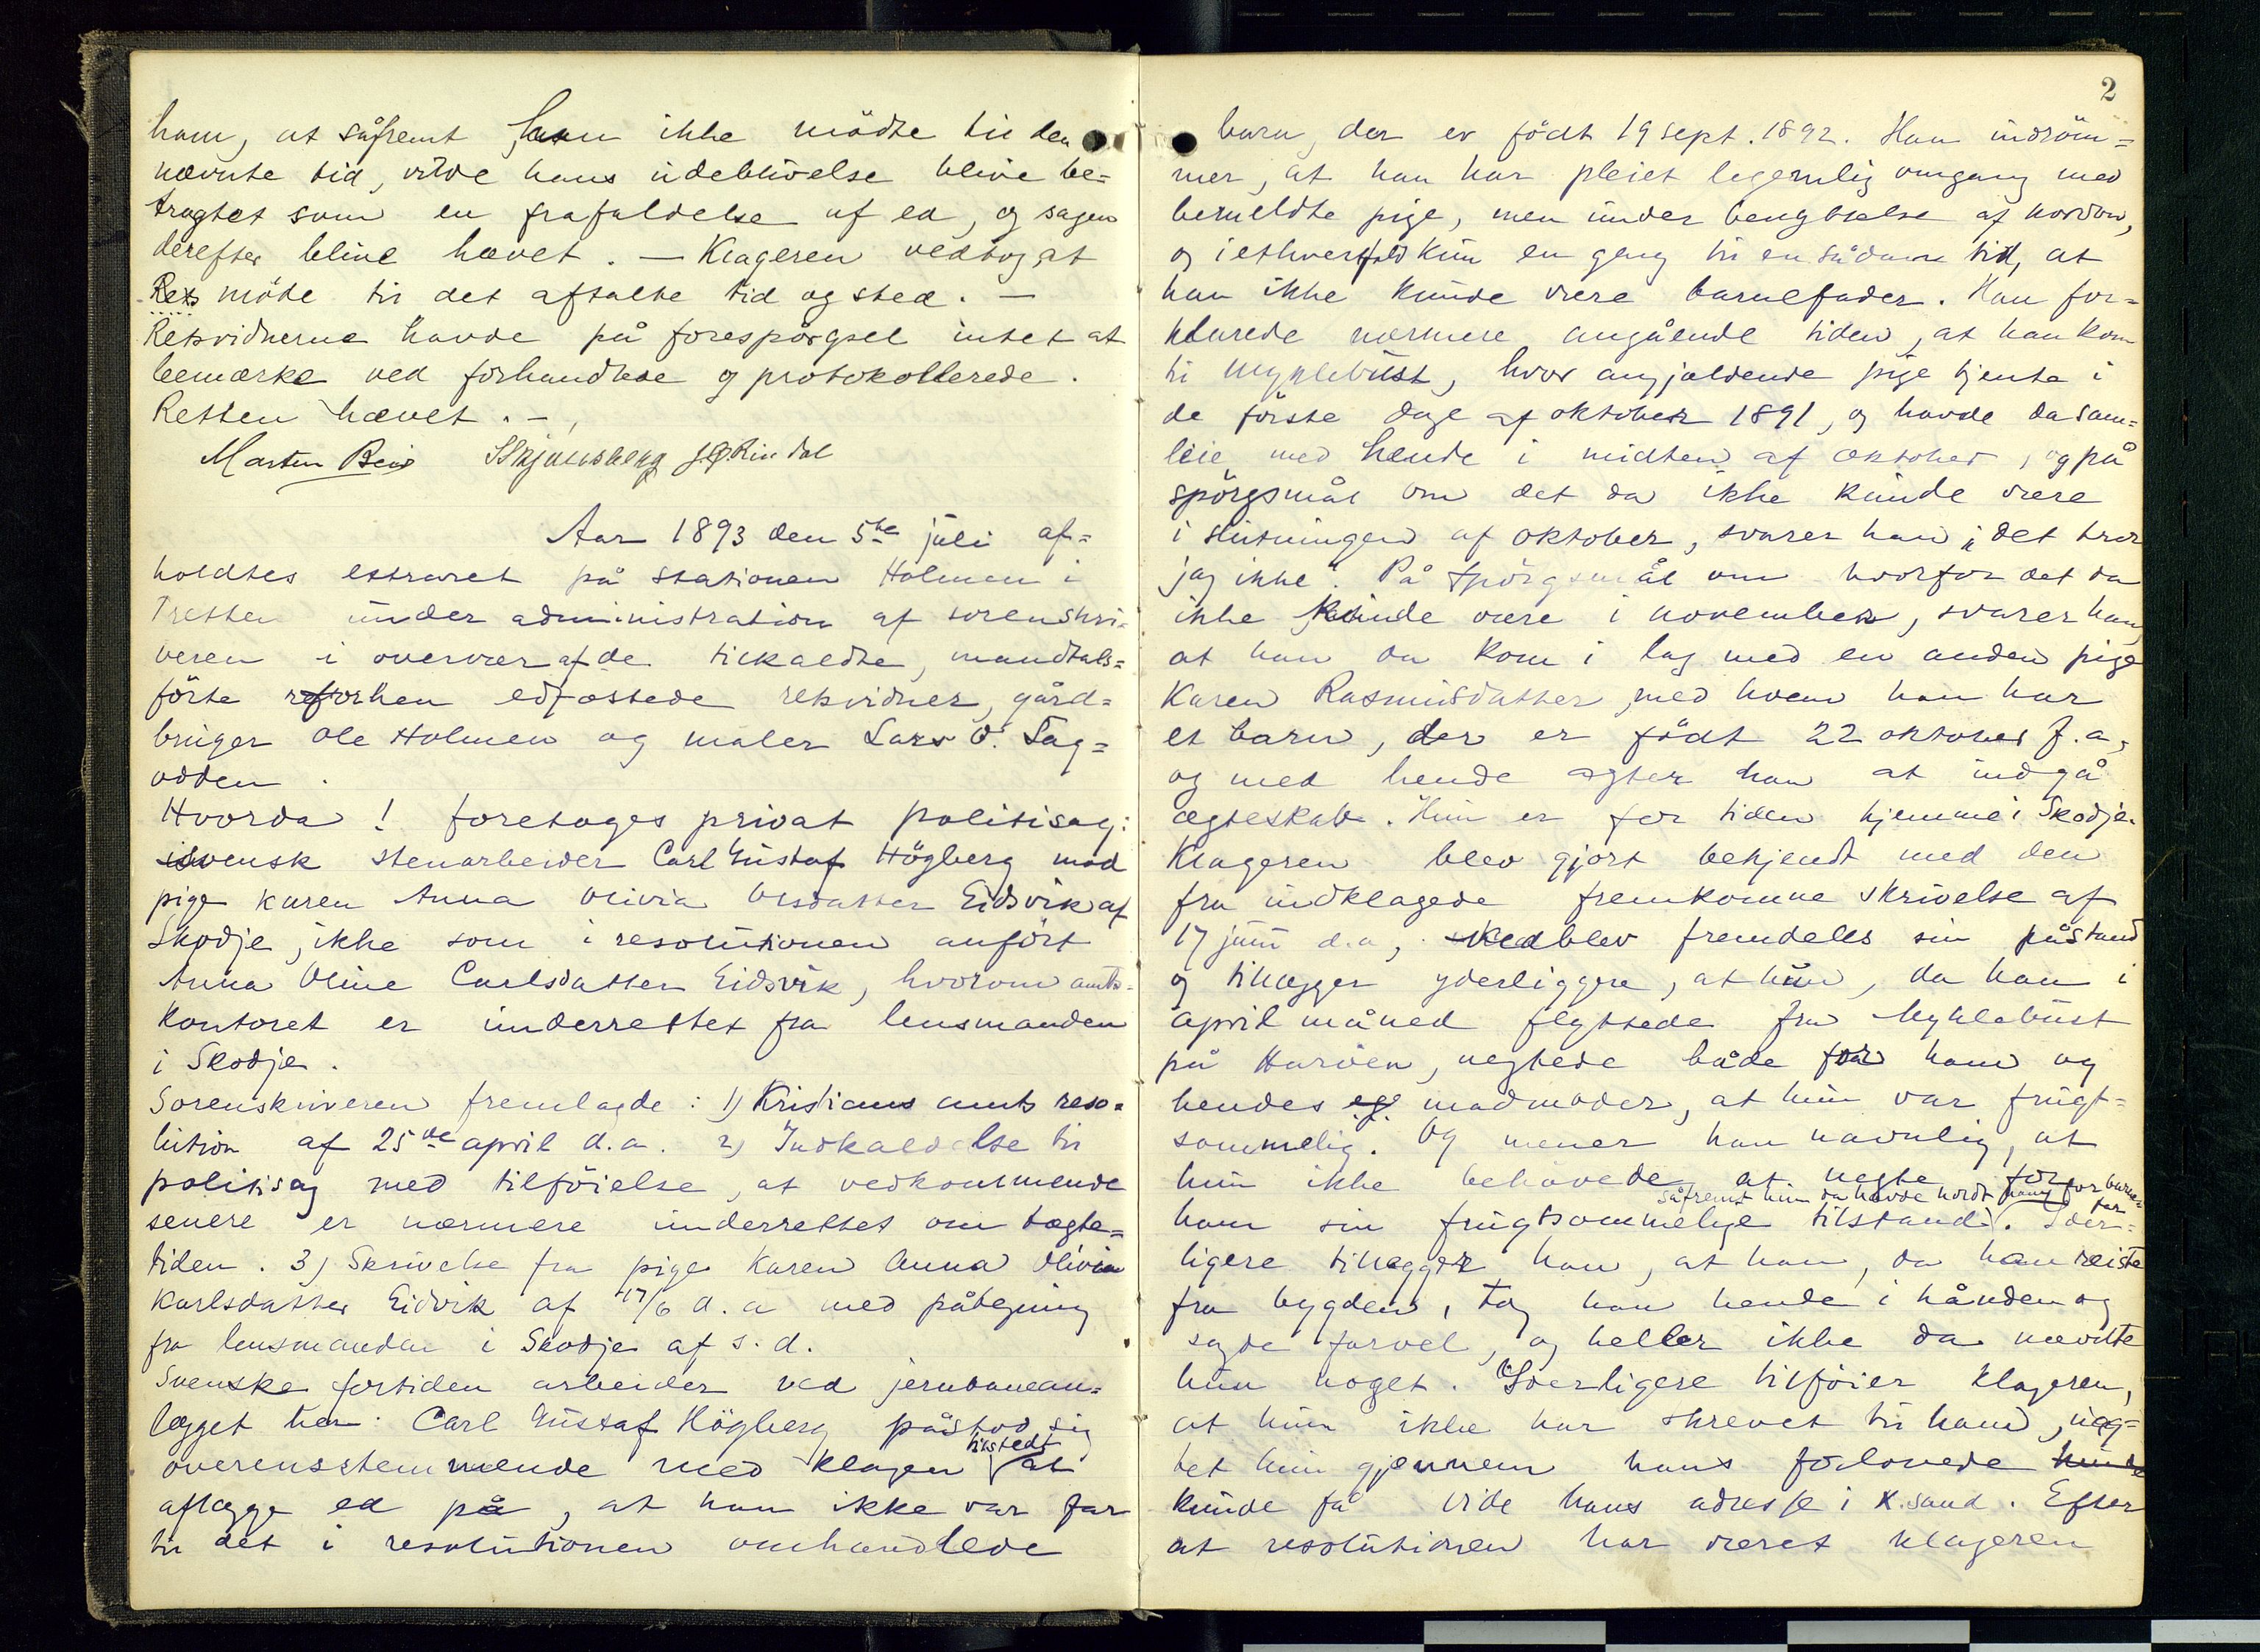 ham, at såfremt han ikke mödte til den
nævnte tid, vilde hans udeblivelse blive be=
tragtet som en frafaldelse af ed, og sagen
derefter blive hævet. — Klageren vedtog at
Rets möde til det aftalte tid og sted. —
Retsvidnerne havde på forespörgsel intet at
bemærke ved forhandlede og protokollerede.
Retten hævet. —
Morten Skjønsberg Rindal
Aar 1893 den 5te juli af=
holdtes extraret på stationen Holmen i
Tretten under administration af sorenskri=
veren i overvær af de tilkaldte, mandtals=
förte forhen edfæstede retsvidner, gård=
bruger Ole Holmen og maler Lars O. Tag=
odden.
Hvorda! foretoges privat politisag:
svensk stenarbeider Carl Gustaf Högberg mod
pige Karen Anna Olivia Olsdatter Eidsvik af
Skodje, ikke som i resolutionen anfört
Anna Oline Carlsdatter Eidsvik, hvorom amts=
kontoret er underrettet fra lensmanden
i Skodje.
Sorenskriveren fremlagde: 1) Kristians amts reso=
lution af 25de april d.a. 2) Indkaldelse til
politisag med tilföielse, at vedkommende
senere er nærmere underrettet om tægte=
tiden. 3) Skrivelse fra pige Karen Anna Olivia
Karlsdatter Eidvik af 17/6 d.a med påtegning
fra lensmanden i Skodje af s.d.
Svenske fortiden arbeider ved jernbanean=
lægget her Carl Gustaf Högberg påstod sig
overensstemmende med klagen tilstedt at
aflægge ed på, at han ikke var far
til det i resolutionen omhandlede
2
barn, der er födt 19 sept. 1892. Han indröm=
mer, at han har pleiet legemlig omgang med
bemeldte pige, men under benyttelse af kordon,
og i ethvertfald kun en gang til en sådan tid, at
han ikke kunde være barnefader. Han for=
klarede nærmere angående tiden, at han kom
til Myklebust, hvor angjældende pige tjente i
de förste dage af oktober 1891, og havde da sam=
leie med hende i midten af oktober, og på
spörgsmål om det da ikke kunde være
i slutningen af oktober, svarer han „det tror
jeg ikke“. På spörgsmål om hvorfor det da
ikke kunde være i november, svarer han,
at han da kom i lag med en anden pige
Karen Rasmusdatter, med hvem han har
et barn, der er födt 22 oktober f.a,
og med hende agter han at indgå
ægteskab. Hun er for tiden hjemme i Skodje.
Klageren blev gjort bekjendt med den
fra indklagede fremkomne skrivelse af
17 juni d.a, vedblev fremdeles sin påstand
og tillægger yderliggere, at hun, da han i
april måned flyttede fra Myklebust
på Haröen, negtede både for ham og
hendes madmoder, at hun var frugt=
sommelig. Og mener han navnlig, at
hun ikke behövede at negte for
såfremt hun da havde holdt ham for barne=
far
ham sin frugtsommelige tilstand. Yder=
ligere tillægger han, at han, da han reiste
fra bygden, tog han hende i hånden og
sagde farvel, og heller ikke da nævnte
hun noget. Yderligere tilföier klageren,
at hun ikke har skrevet til ham, uag=
tet hun gjennem hans forlovede
kunde få vide hans adresse i K.sund. Efter
at resolutionen har været klageren